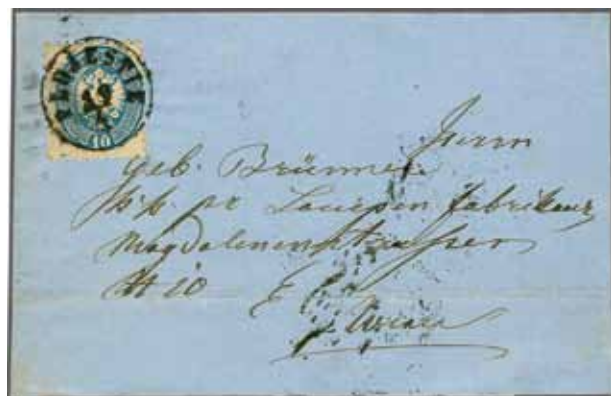 10
Herrn
Geb. Brünner
k.k. pr Lampen fabrikant
Magdalenenstrasse
# 10
Wien